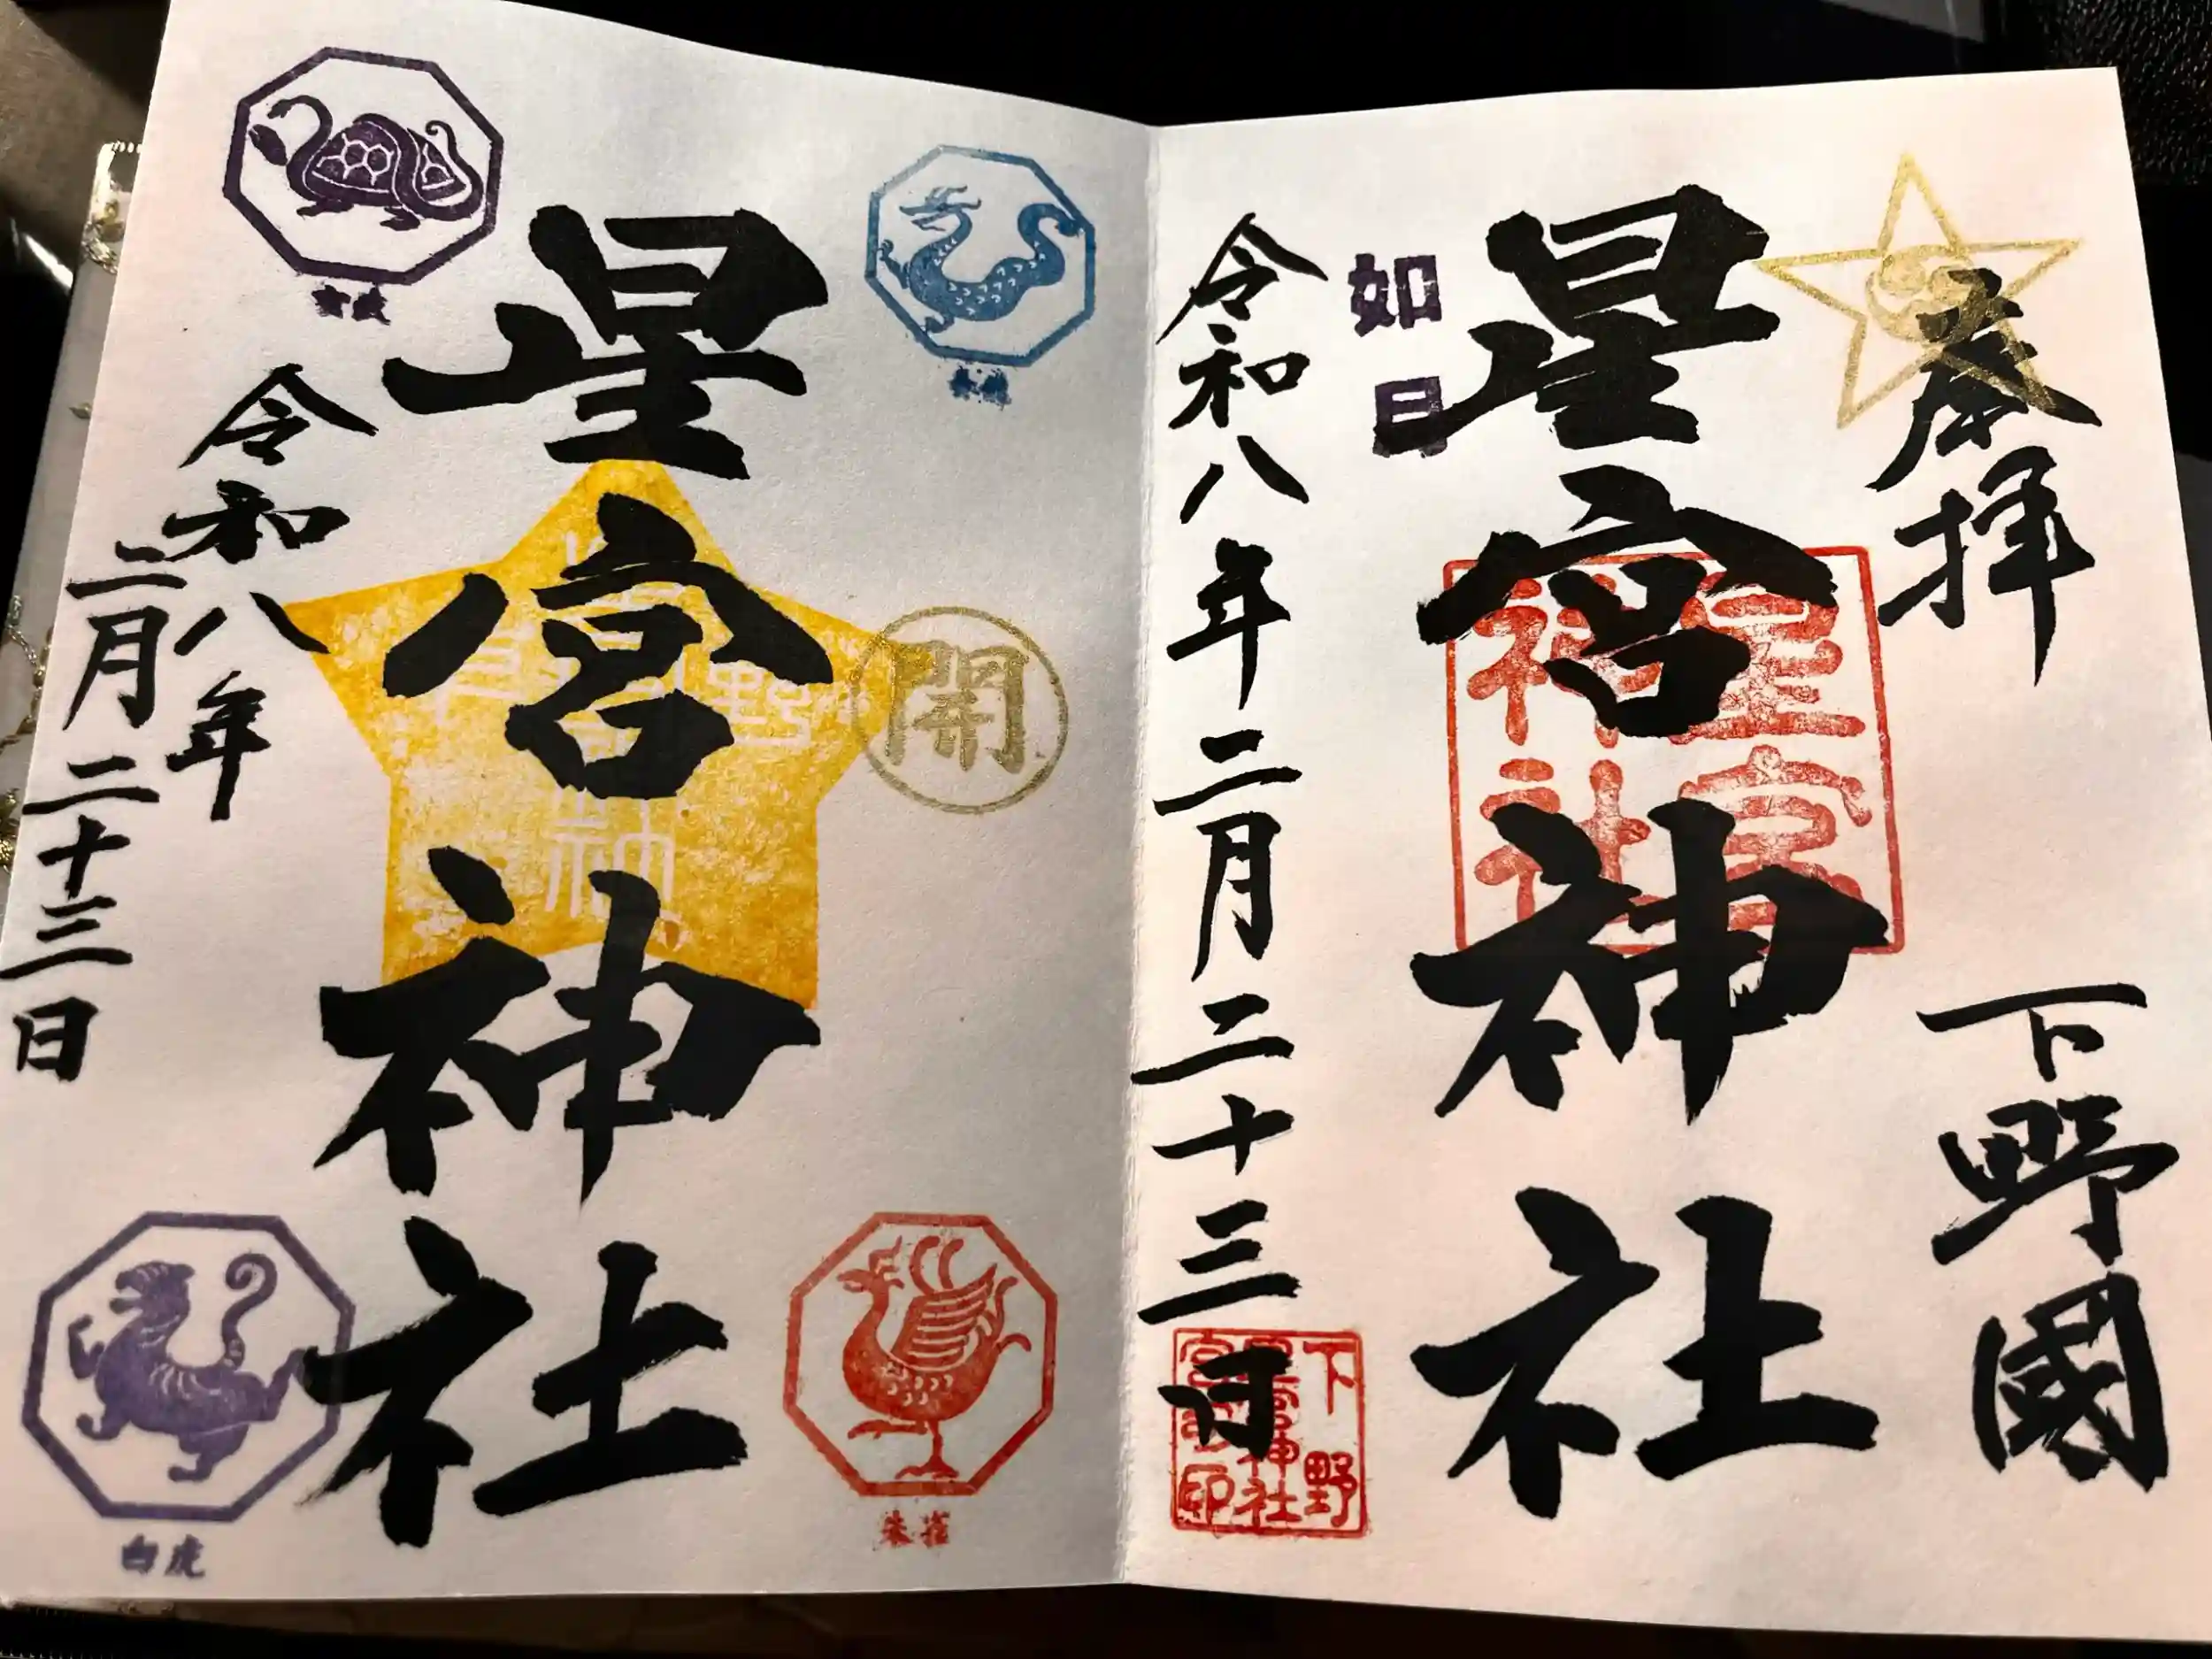 奉拝
下野國
星宮神社
星宮神社
如
日
令和八年二月二十三日
下野
星宮神社
星宮神社
開
令和八年
二月二十三日
朱雀
白虎